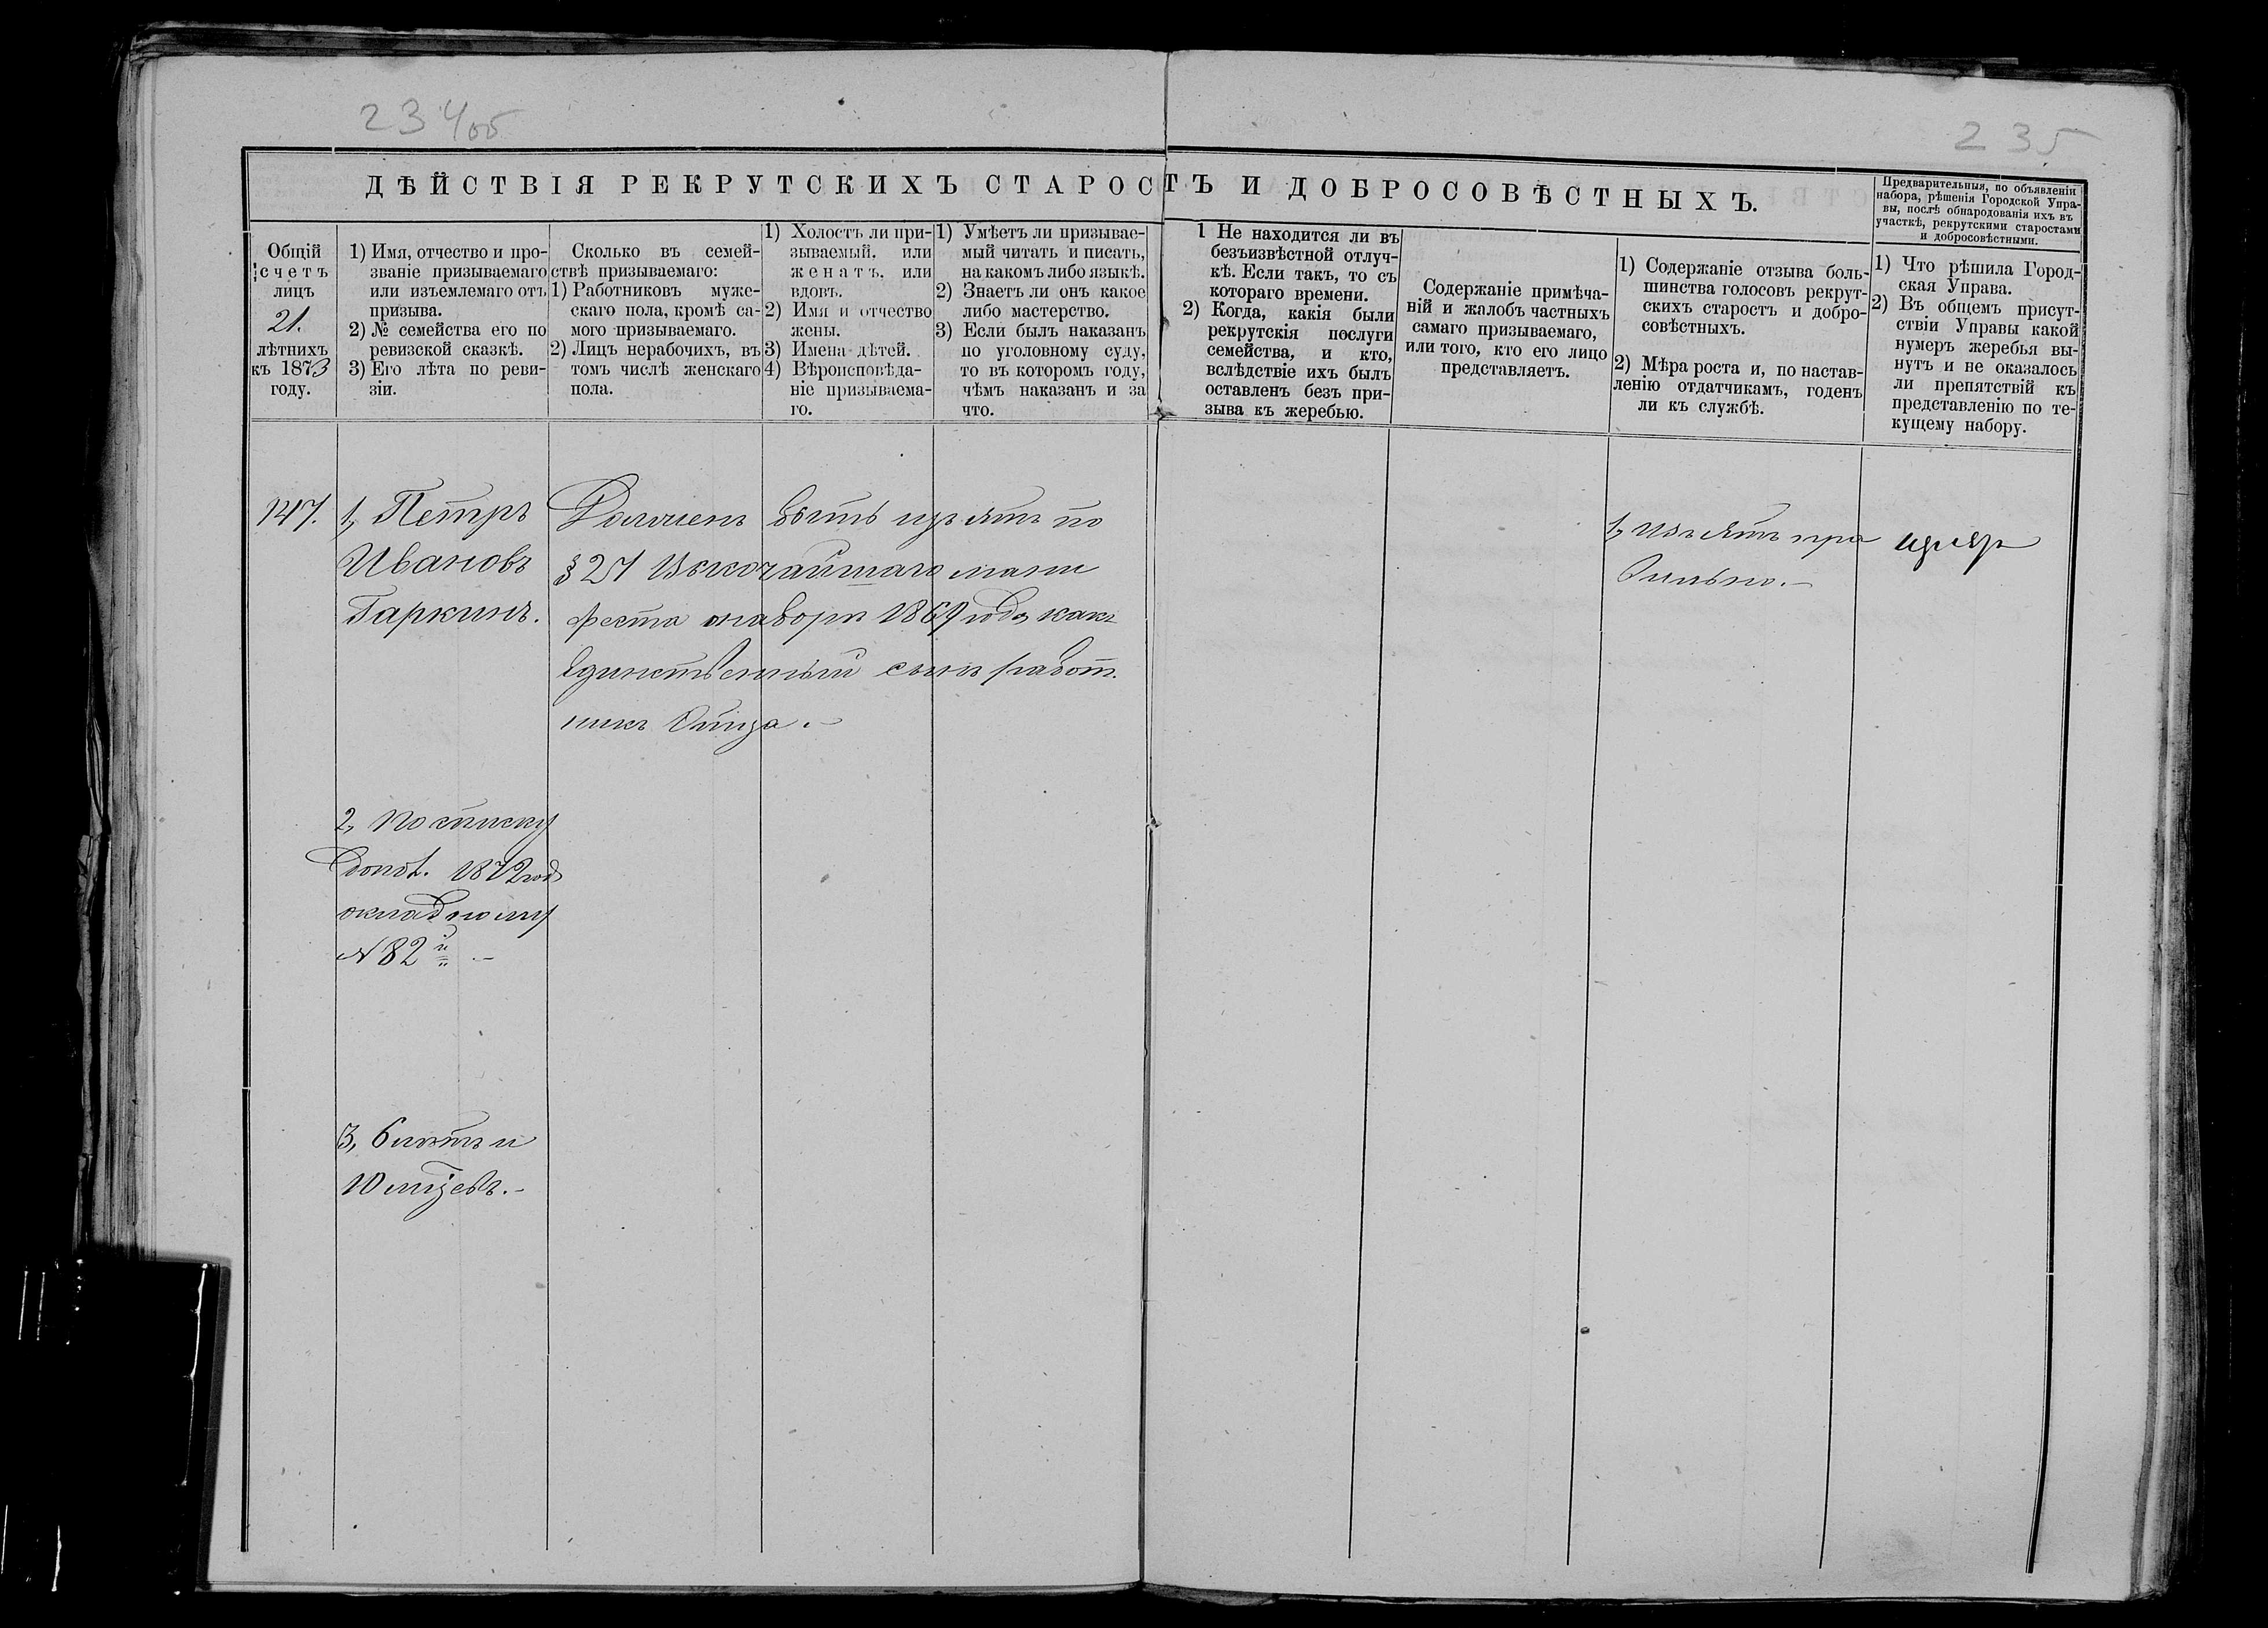 234об
235
ДѢЙСТВІЯ РЕКРУТСКИХЪ СТАРОСТЪ И ДОБРОСОВѢСТНЫХЪ.
Предварительныя, по объявленіи
набора, рѣшенія Городской Упра-
вы, послѣ обнародованія ихъ въ
участкѣ, рекрутскими старостами
и добросовѣстными.
Общій
счетъ
лицъ
21.
лѣтнихъ
къ 1873
году.
1) Имя, отчество и про-
званіе призываемаго
или изъемлемаго отъ
призыва.
2) № семейства его по
ревизской сказкѣ.
3) Его лѣта по реви-
зіи.
Сколько въ семей-
ствѣ призываемаго:
1) Работниковъ муже-
скаго пола, кромѣ са-
мого призываемаго.
2) Лицъ нерабочихъ, въ
томъ числѣ женскаго
пола.
1) Холостъ ли при-
зываемый, или
женатъ, или
вдовъ.
2) Имя и отчество
жены.
3) Имена дѣтей.
4) Вѣроисповѣда-
ніе призываема-
го.
1) Умѣетъ ли призывае-
мый читать и писать,
на какомъ либо языкѣ.
2) Знаетъ ли онъ какое
либо мастерство.
3) Если былъ наказанъ
по уголовному суду,
то въ которомъ году,
чѣмъ наказанъ и за
что.
1 Не находится ли въ
безъизвѣстной отлуч-
кѣ. Если такъ, то съ
котораго времени.
2) Когда, какія были
рекрутскія послуги
семейства, и кто,
вслѣдствіе ихъ былъ
оставленъ безъ при-
зыва къ жеребью.
Содержаніе примѣча-
ній и жалобъ частныхъ
самаго призываемаго,
или того, кто его лицо
представляетъ.
1) Содержаніе отзыва боль-
шинства голосовъ рекрут-
скихъ старостъ и добро-
совѣстныхъ.
2) Мѣра роста и, по настав-
ленію отдатчикамъ, годенъ
ли къ службѣ.
1) Что рѣшила Город-
ская Управа.
2) Въ общемъ присут-
ствіи Управы какой
нумеръ жеребья вы-
нутъ и не оказалось
ли препятствій къ
представленію по те-
кущему набору.
147.
1, Петръ
Ивановъ
Гаркинъ.
Долженъ быть изъятъ по
§ 21 Высочайшаго мани
феста о наборѣ 1869 года, какъ
Единственный сынъ работ.
никъ Отца.
2, По списку
1872 год
окладному
№ 82й
3, 6 лѣтъ и
10 м-цевъ.
1, Изъятъ пра
вильно.